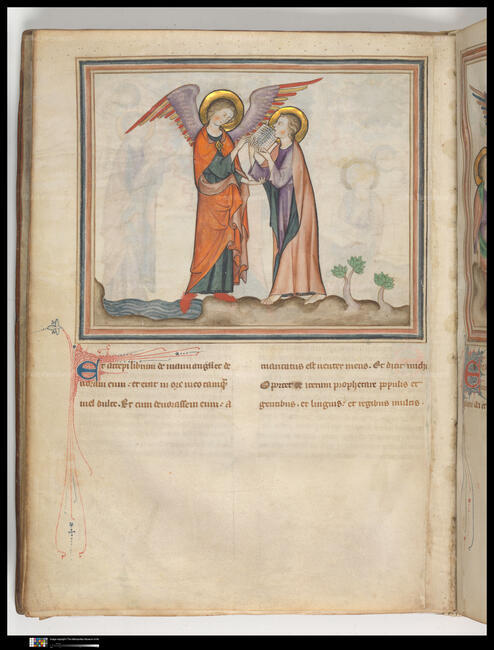 Et accepi librum de manu angeli: et de
uoraui eum: et erat in ore meo tamq̃
mel dulce. Et cum deuorassem eum: a
maricatus est uenter meus. Et dicit michi
Oportet te iterum prophetare populis et
gentibus. et linguis: et regibus multis.
Image copyright The Metropolitan Museum of Art